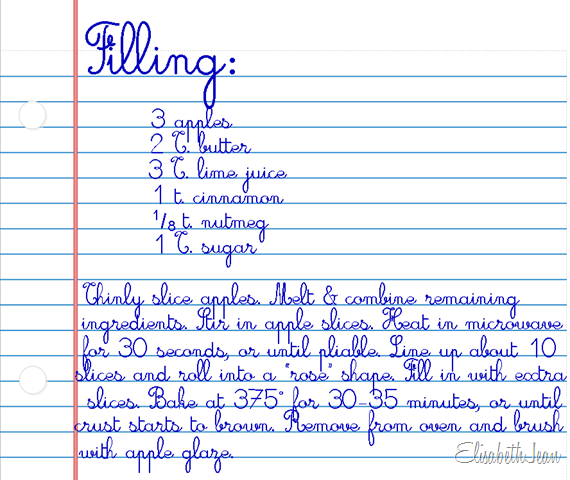 Filling:
3 apples
2 T. butter
3 T. lime juice
1 t. cinnamon
1/8 t. nutmeg
1 T. sugar
Thinly slice apples. Melt & combine remaining
ingredients. Stir in apple slices. Heat in microwave
for 30 seconds, or until pliable. Line up about 10
slices and roll into a "rose" shape. Fill in with extra
slices. Bake at 375° for 30-35 minutes, or until
crust starts to brown. Remove from oven and brush
with apple glaze.
ElisabethJean